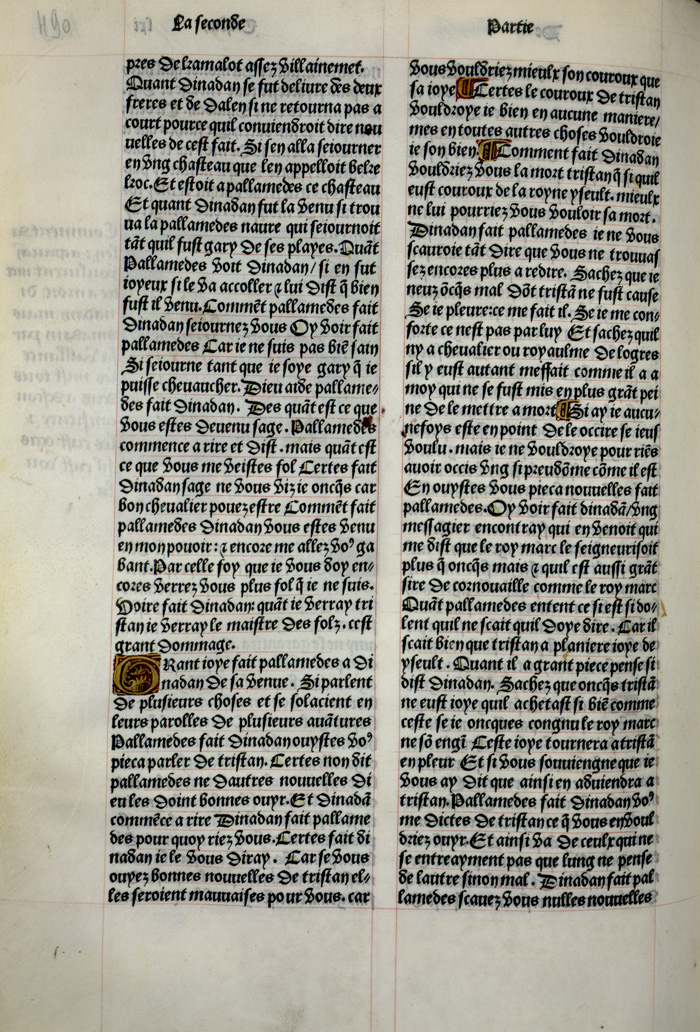 La seconde
Partie
pres de kramalot assez villainemẽt.
Quant dinadan se fut deliure des deux
freres et de dalen si ne retourna pas a
court pource quil conviendroit dire nou
uelles de cest fait. Si sen alla seiourner
en vng chasteau que len appelloit belre
lroc. Et estoit a pallamedes ce chasteau
Et quant dinadan fut la venu si trou
ua la pallamedes naure qui seiournoit
tãt quil fust gary de ses playes. Quãt
Pallamedes voit dinadan/ si en fut
ioyeux si le va accoller ⁊ lui dist q̃ bien
fust il venu. Commẽt pallamedes fait
dinadan seiournez vous Oy voir fait
pallamedes Car ie ne suis pas biẽ sain
Si seiourne tant que ie soye gary q̃ ie
puisse cheuaucher. Dieu aide pallame⸗
des fait dinadan. Des quant est ce que
vous estes deuenu sage. Pallamedes
commence a rire et dist. mais quãt est
ce que vous me veistes fol Certes fait
dinadan sage ne vous viz ie oncq̃s car
bon cheualier pouez estre Commẽt fait
pallamedes dinadan vous estes venu
en mon pouoir: ⁊ encore me allez voꝰ ga
bant. Par celle foy que ie vous doy en⸗
cores verrez vous plus fol q̃ ie ne suis.
Voire fait dinadan: quãt ie verray tri
stan ie verray le maistre des folz. cest
grant dommage.
GRant ioye fait pallamedes a di
nadan de sa venue. Si parlent
de plusieurs choses et se solacient en
leurs parolles de plusieurs auãtures
Pallamedes fait dinadan ouystes voꝰ
pieca parler de tristan. Certes non dit
pallamedes ne dautres nouuelles di
eu les doint bonnes ouyr. Et dinadã
commẽce a rire Dinadan fait pallame
des pour quoy riez vous. Certes fait di
nadan ie le vous diray. Car se vous
ouyez bonnes nouuelles de tristan el⸗
les seroient mauuaises pour vous. car
vous vouldriez mieulx son couroux que
sa ioye ¶ Certes le couroux de tristan
vouldroye ie bien en aucune maniere.
mes en toutes autres choses vouldroie
ie son bien. ¶ Comment fait dinadan
vouldriez vous la mort tristan q̃ si quil
eust couroux de la royne yseult. mieulx
ne lui pourriez vous vouloir sa mort.
Dinadan fait pallamedes ie ne vous
scauroie tãt dire que vous ne trouuas
sez encores plus a redire. Sachez que ie
neuz õcq̃s mal dõt tristã ne fust cause
Se ie pleure: ce me fait il. Se ie me con⸗
forte ce nest pas par luy Et sachez quil
ny a cheualier ou royaulme de logres
sil y eust autant meffait comme il a a
moy qui ne se fust mis en plus grãt pei
ne de le mettre a mort ¶ Si ay ie aucu⸗
nefoys este en point de le occire se ieus
voulu. mais ie ne vouldroye pour riẽs
auoir occis vng si preudõme cõme il est
En ouystes vous pieca nouuelles fait
pallamedes. Oy voir fait dinadã/vng
messagier encontray qui en venoit qui
me dist que le roy marc le seigneurisoit
plus q̃ oncq̃s mais ⁊ quil est aussi grãt
sire de cornouaille comme le roy marc
Quãt pallamedes entent ce si est si do⸗
lent quil ne scait quil doye dire. Car il
scait bien que tristan a planiere ioye de
yseult. Quant il a grant piece pense si
dist Dinadan. Sachez que oncq̃s tristã
ne eust ioye quil achetast si biẽ comme
ceste se ie oncques congnu le roy marc
ne sõ engĩ Ceste ioye tournera a tristã
en pleur Et si vous souuiengne que ie
vous ay dit que ainsi en aduiendra a
tristan. Pallamedes fait dinadan voꝰ
me dictes de tristan ce q̃ vous en voul
driez ouyr. Et ainsi va de ceulx qui ne
se entreayment pas que lung ne pense
de lautre sinon mal. Dinadan fait pal
lamedes scauez vous nulles nouuelles